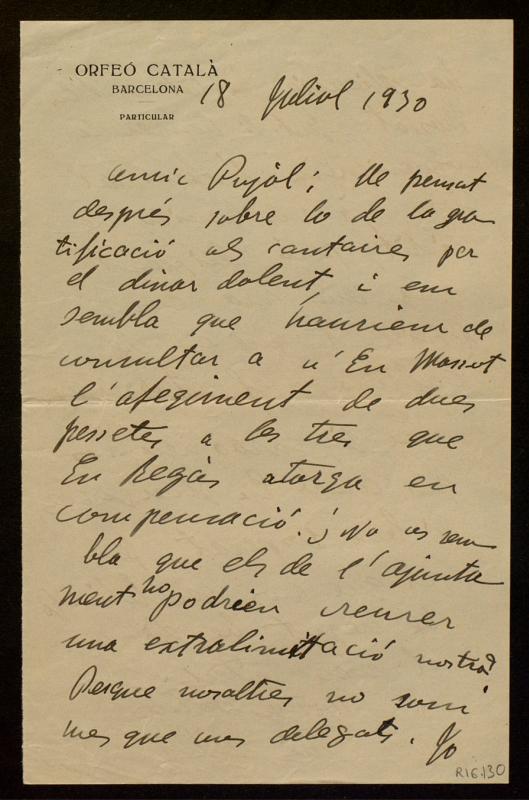 ORFEÓ CATALÀ
BARCELONA
PARTICULAR
18 Juliol 1930
Amic Pujol; He pensat
després sobre lo de la gra
tificació als cantaires per
el dinar dolent i em
sembla que hauriem de
consultar a n' En Massot
l'afegiment de dues
pessetes a les tres que
En Regàs atorga en
compensació. ¿No us sem
bla que els de l'ajunta
ment ho podrien creurer
una extralimitació nostra?
Perque nosaltres no som
mes que uns delegats. Jo
R16.130